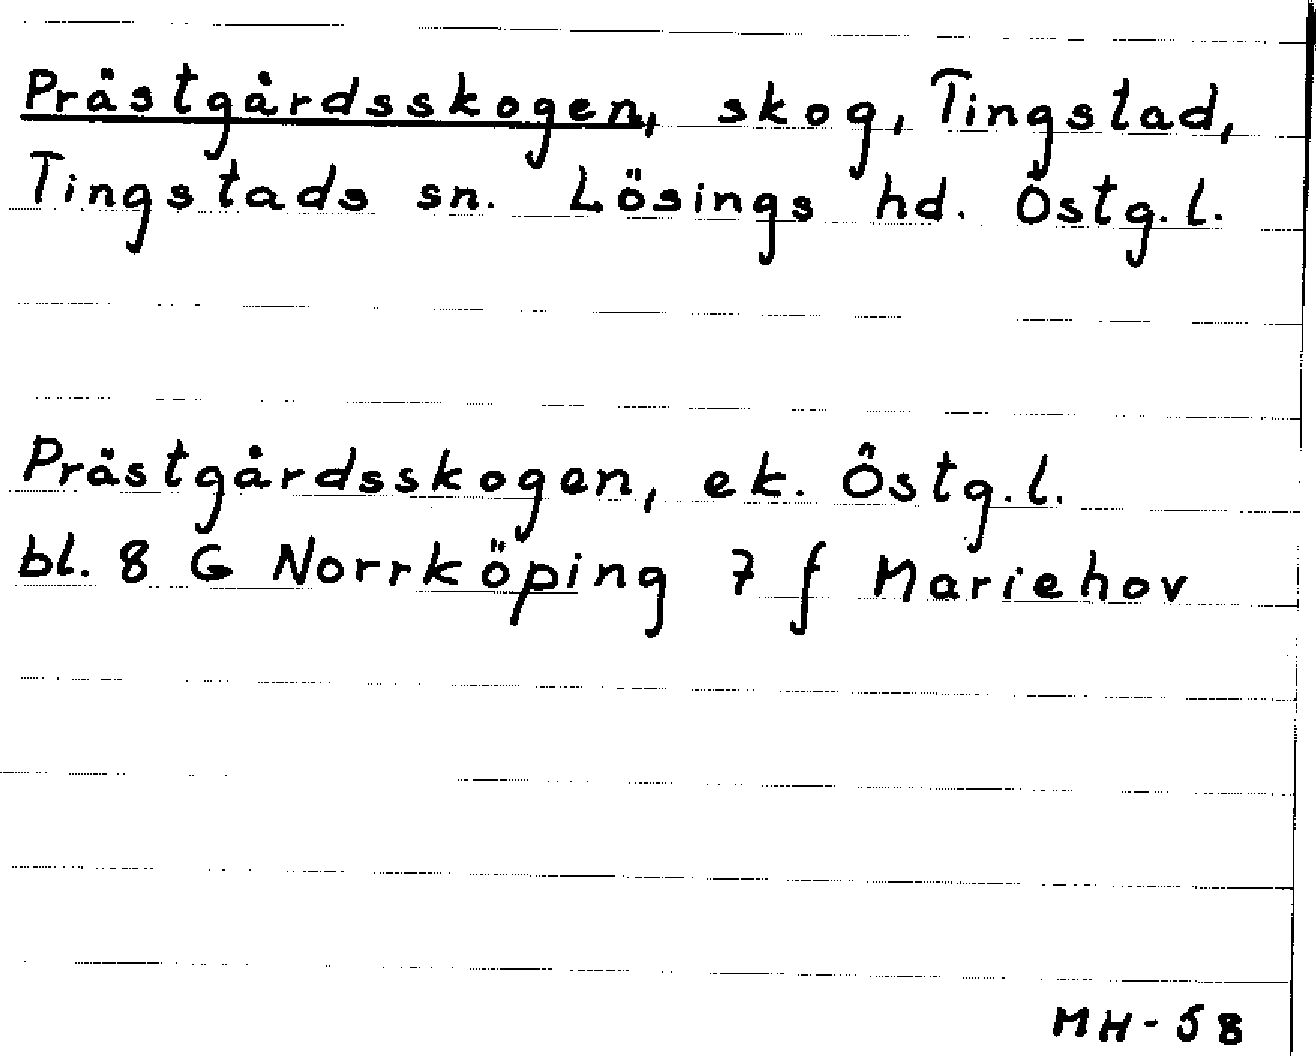 Prästgårdsskogen, skog, Tingstad,
Tingstads sn. Lösings hd. Östg.l.
Prästgårdsskogen, ek. Östg.l.
bl. 8 G Norrköping 7 f Mariehov
MH-58